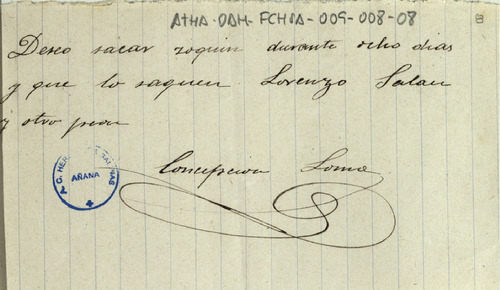 ATHA-DAH-FCHSA-009-008-08
Deseo sacar zoquin durante ocho dias
y que lo saquen Lorenzo Salau
y otro peon
Concepcion Loma
AÑANA
4